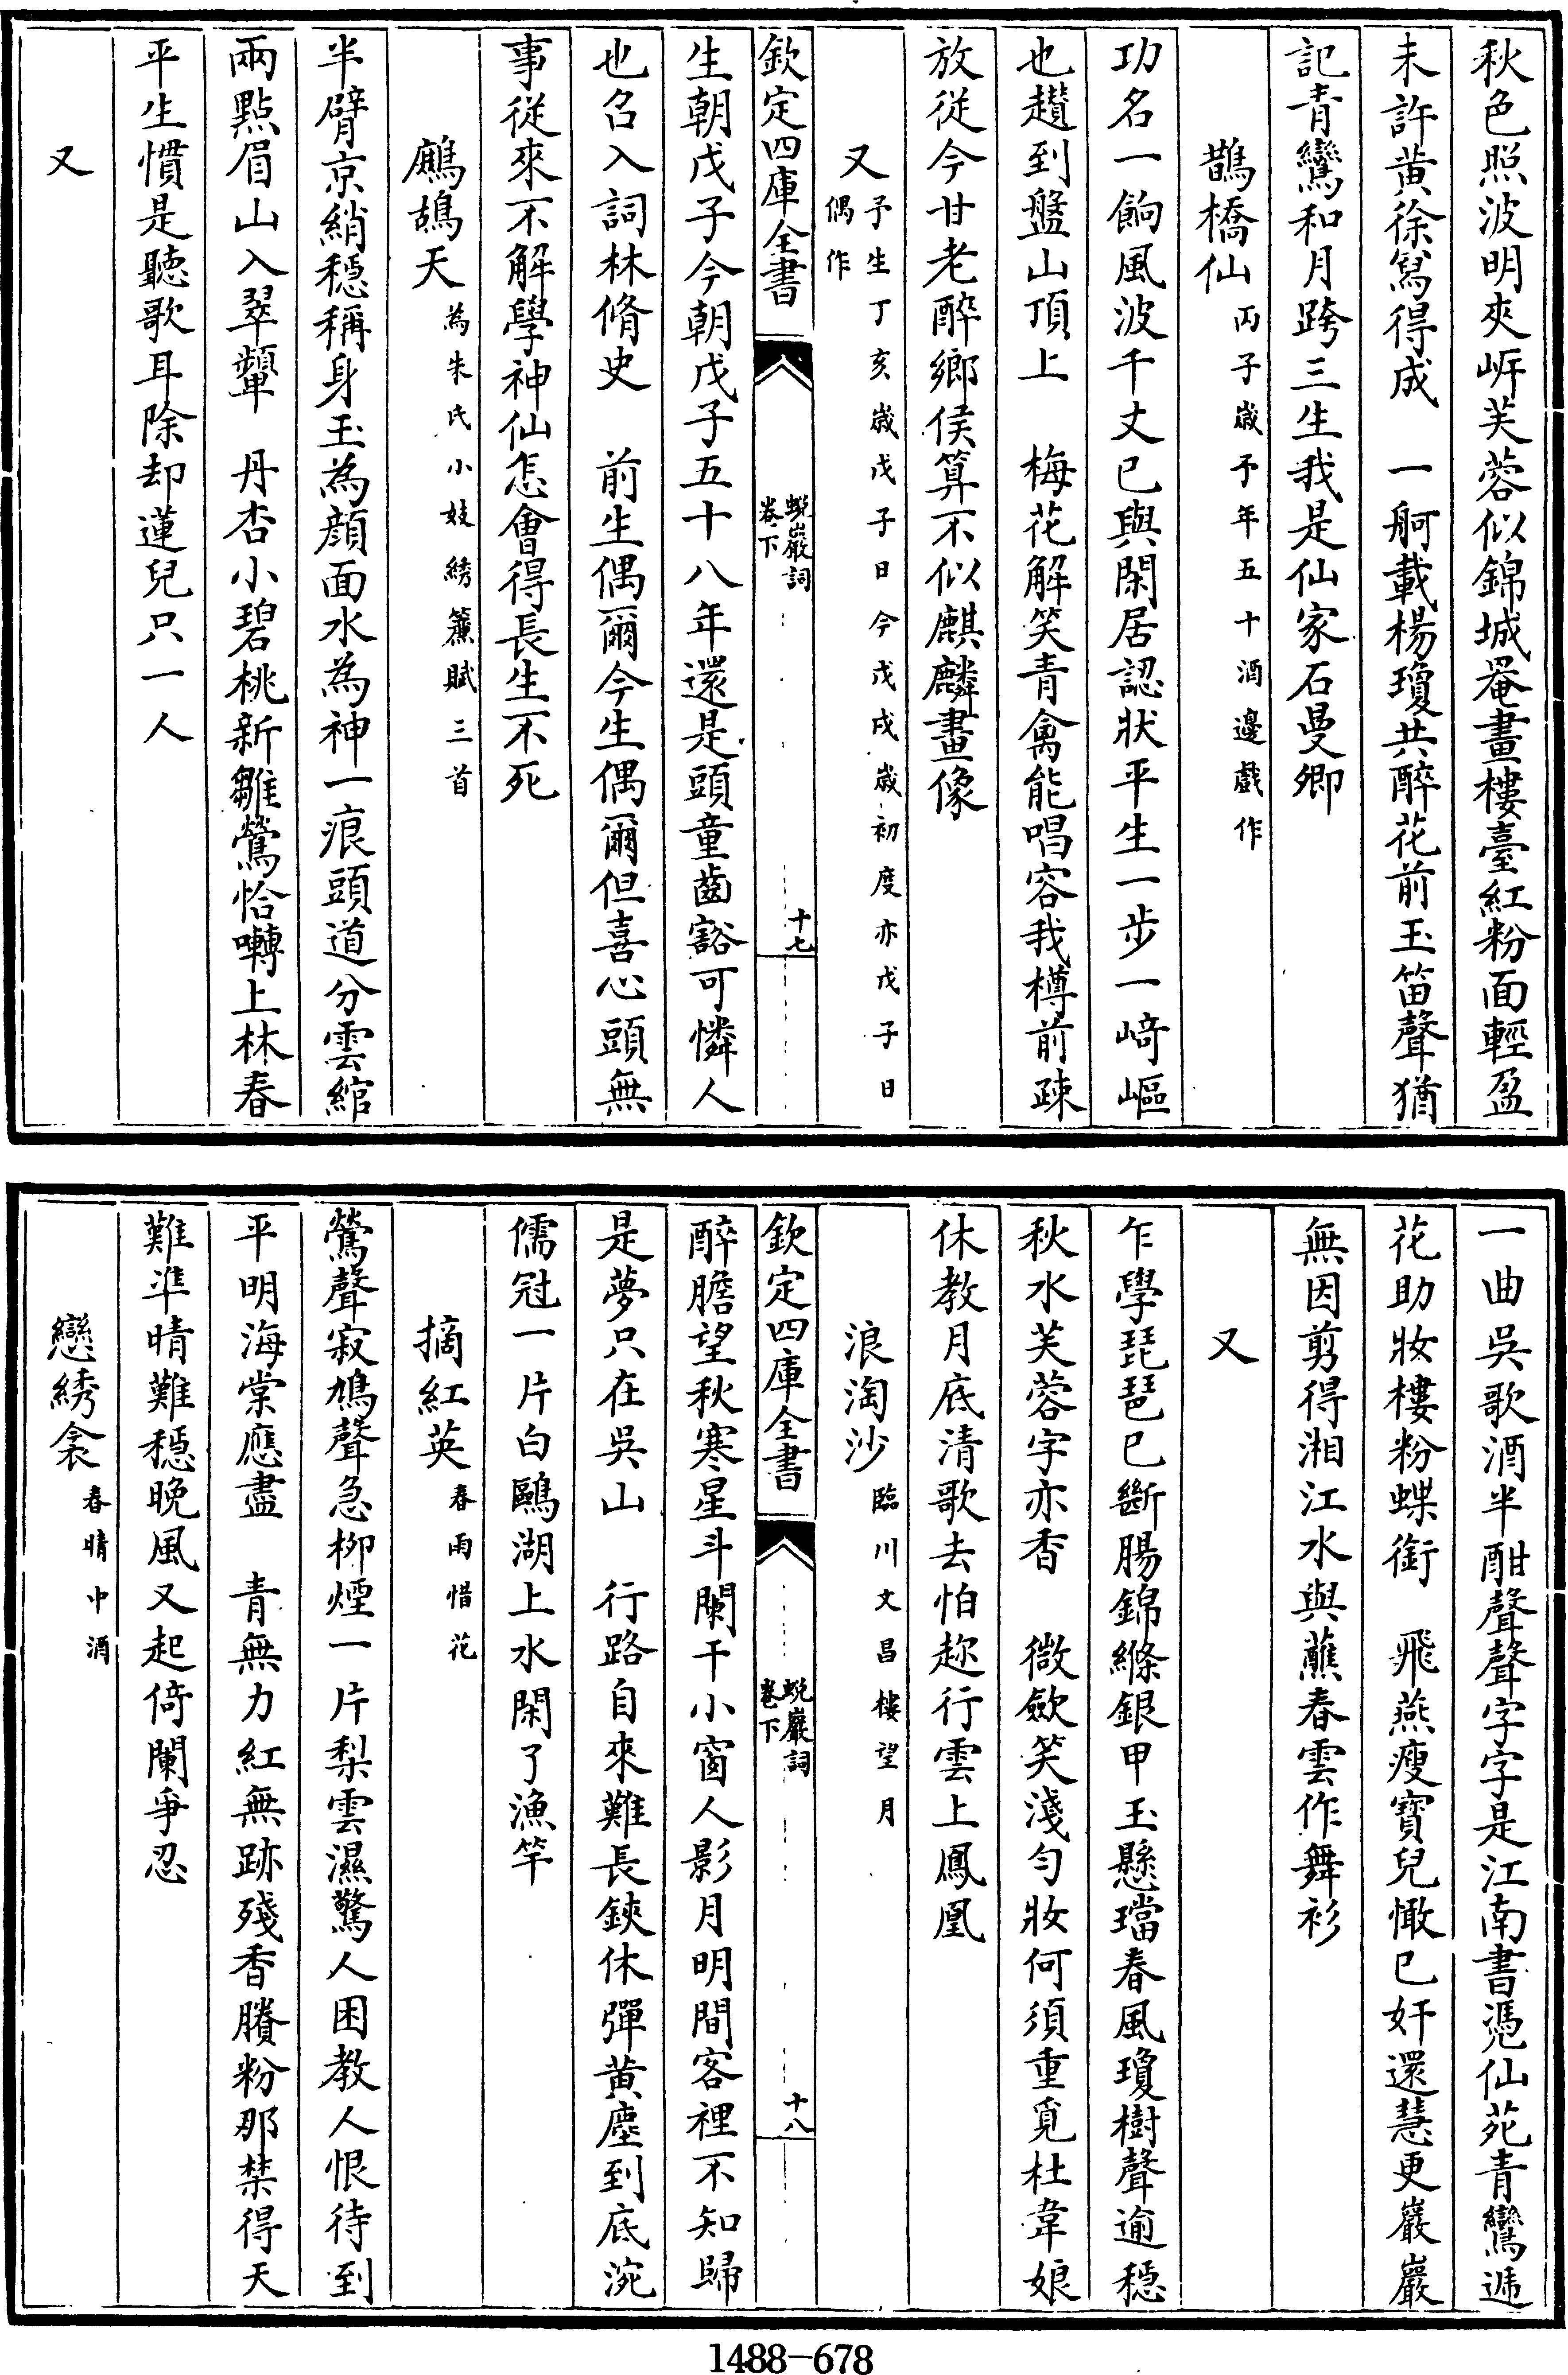 秋色照波明夾岍芙蓉似錦城罨畫樓臺紅粉面輕盈
未許黄徐冩得成　一舸載楊瓊共醉花前玉笛聲猶
記青鸞和月跨三生我是仙家石曼卿
鵲橋仙丙子歲予年五十酒邊戲作
功名一餉風波千丈已與閑居認狀平生一步一﨑嶇
也趲到盤山頂上　梅花解笑青禽能唱容我樽前疎
放從今甘老醉鄉侯算不似麒麟畫像
又予生丁亥歲戊子日今戊戌歲初度亦戊子日
偶作
欽定四庫全書
蛻巖詞
卷下
十七
生朝戊子今朝戊子五十八年還是頭童齒豁可憐人
也名入詞林脩史　前生偶爾今生偶爾但喜心頭無
事從來不解學神仙怎會得長生不死
鷓鴣天為朱氏小妓綉簾賦三首
半臂京綃穩稱身玉為顔面水為神一痕頭道分雲綰
兩點眉山入翠顰　丹杏小碧桃新雛鶯恰囀上林春
平生慣是聽歌耳除却蓮兒只一人
又
一曲吳歌酒半酣聲聲字字是江南書憑仙苑青鸞遞
花助妝樓粉蝶銜　飛燕瘦寳兒憨已奸還慧更巖巖
無因剪得湘江水與蘸春雲作舞衫
又
乍學琵琶已斷腸錦絛銀甲玉懸璫春風瓊樹聲逾穏
秋水芙蓉字亦香　微歛笑淺勻妝何須重覓杜韋娘
休教月底清歌去怕趂行雲上鳳凰
浪淘沙臨川文昌樓望月
欽定四庫全書
蛻巖詞
卷下
十八
醉膽望秋寒星斗闌干小窗人影月明間客裡不知歸
是夢只在吳山　行路自來難長鋏休彈黄塵到底涴
儒冠一片白鷗湖上水閑了漁竿
摘紅英春雨惜花
鶯聲寂鳩聲急柳煙一片梨雲濕驚人困教人恨待到
平明海棠應盡　青無力紅無跡殘香賸粉那禁得天
難準晴難穏晚風又起倚闌爭忍
戀綉衾春晴中酒
1488-678